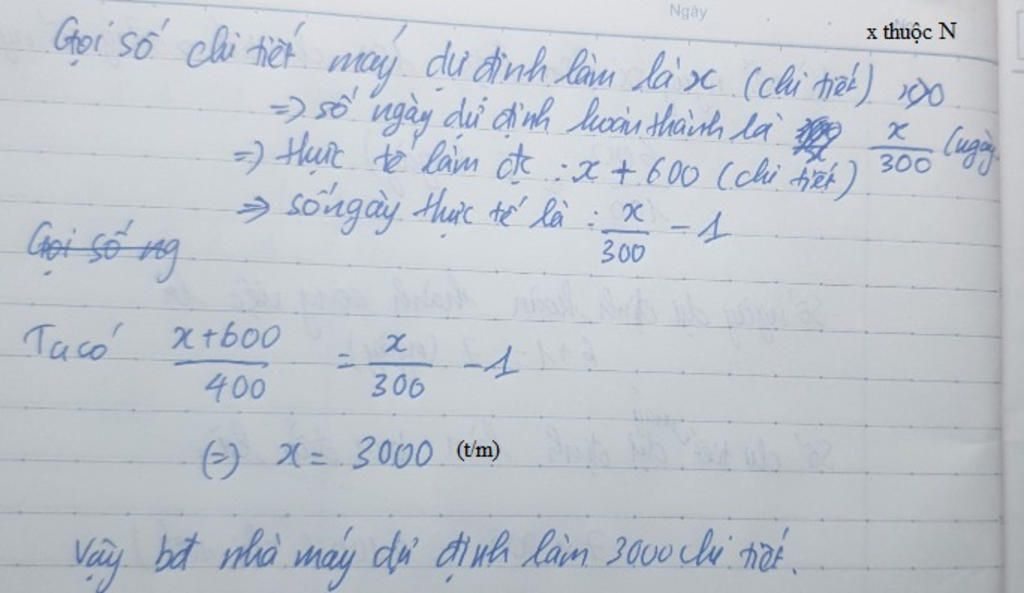 Ngày
x thuộc N
Gọi số chi tiết máy dự định làm là x (chi tiết) x>0
=> số ngày dự định hoàn thành là x/300 (ngày
=> thực tế làm đc : x + 600 (chi tiết)
=> số ngày thực tế là : x/300 - 1
Gọi số ng
Ta có x+600/400 = x/300 - 1
(=) x = 3000 (t/m)
Vậy bđ nhà máy dự định làm 3000 chi tiết.